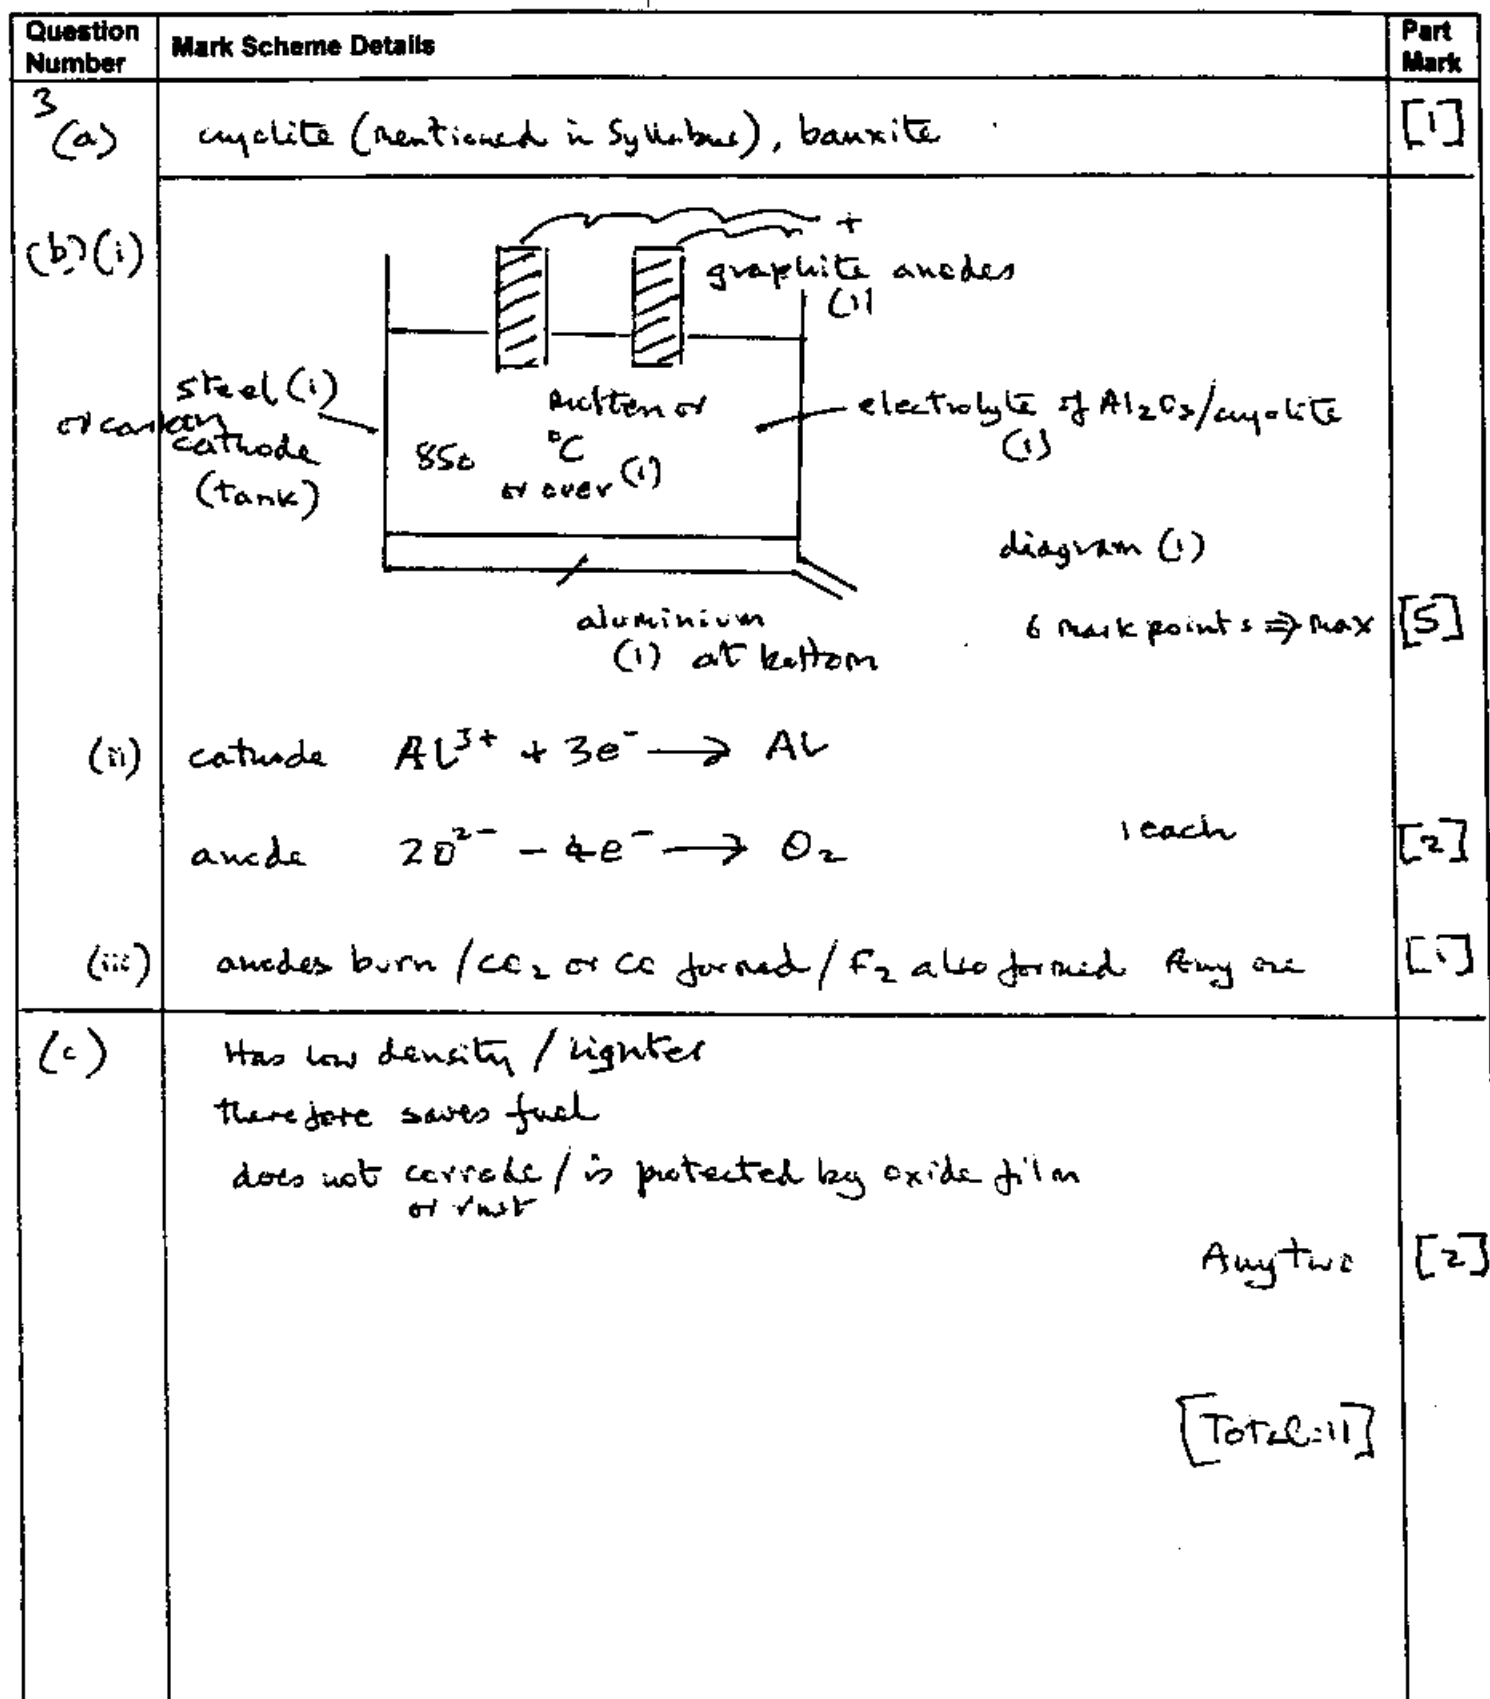 Question Number
Mark Scheme Details
Part Mark
3
(a)
cryolite (mentioned in Syllabus), bauxite
[1]
(b)(i)
+
graphite anodes
(1)
steel (1)
or carbon
cathode
(tank)
molten or
850 °C
or over (1)
electrolyte of Al₂O₃/cryolite
(1)
diagram (1)
aluminium
(1) at bottom
6 mark points ⇒ max
[5]
(ii)
cathode Al³⁺ + 3e⁻ → Al
anode 2O²⁻ - 4e⁻ → O₂
1 each
[2]
(iii)
anodes burn / CO₂ or CO formed / F₂ also formed Any one
[1]
(c)
Has low density / lighter
therefore saves fuel
does not corrode / is protected by oxide film
or rust
Any two
[2]
[Total=11]